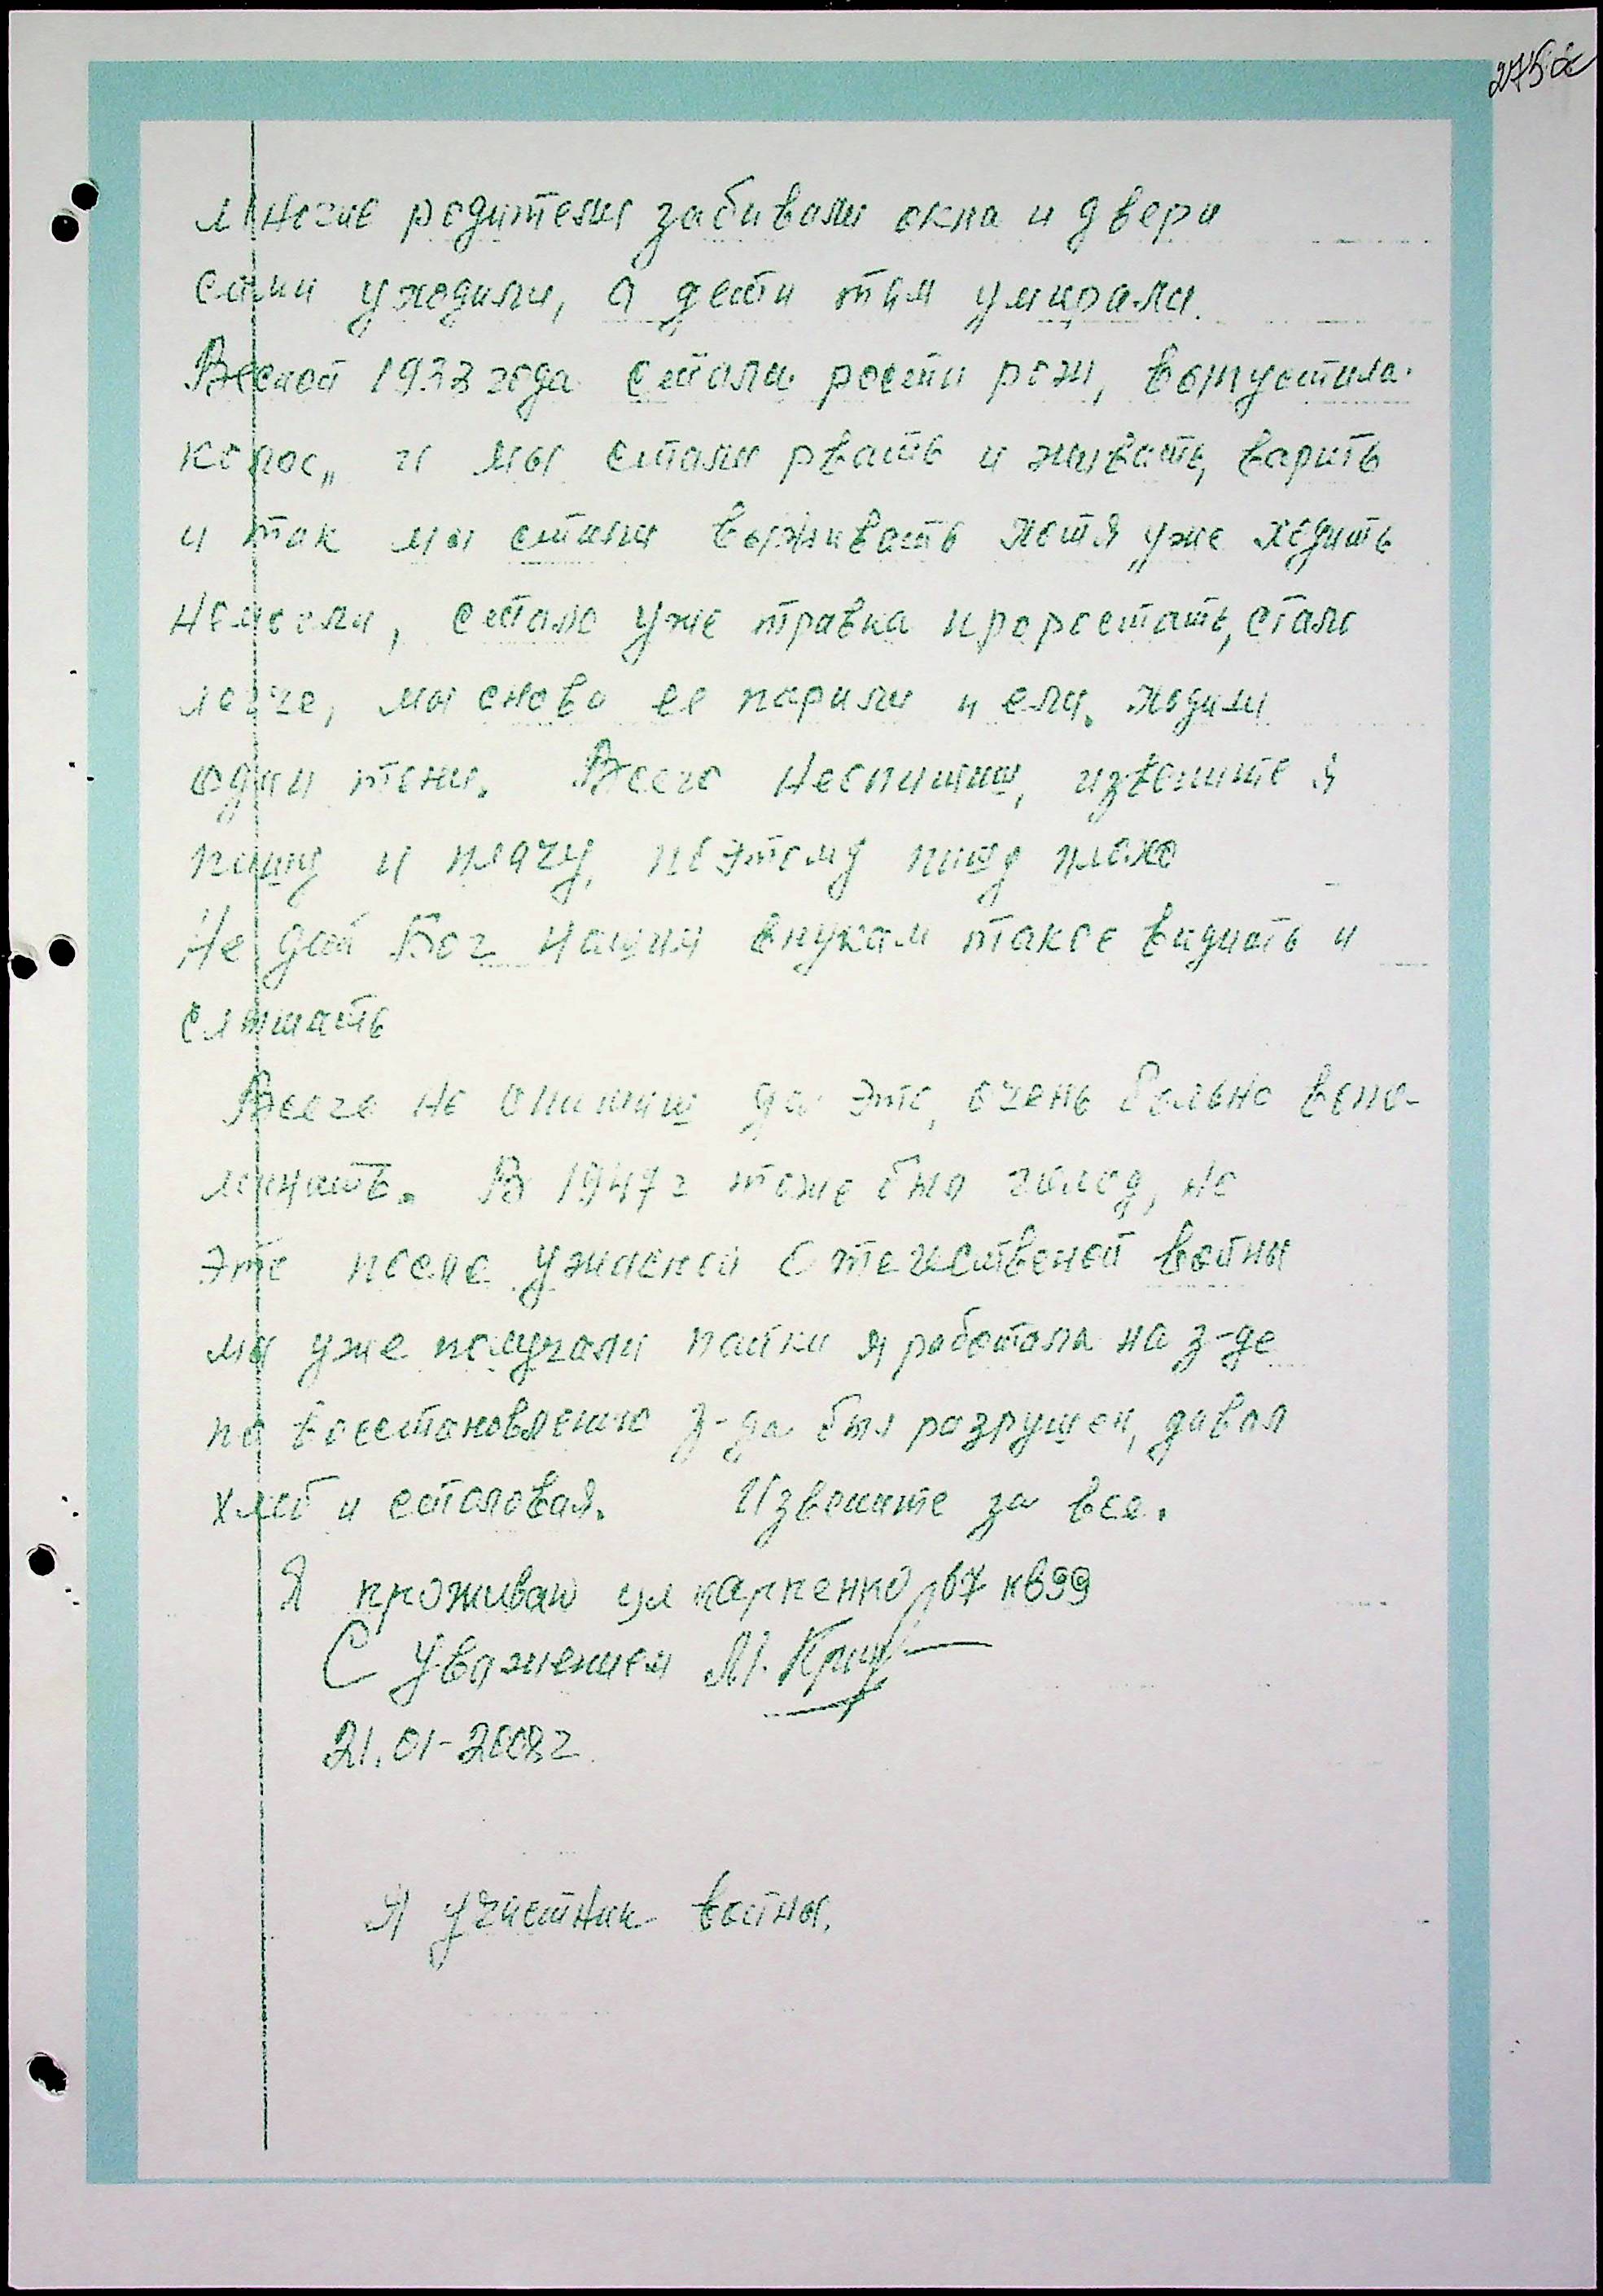 275а
многие родители забивали окна и двери
сами уходили, а дети там умирали.
Весной 1933 года стали рости рож, вотпустила
колос,, и мы стали рвать и живать, варить
и так мы стали выживать хотя уже ходить
немогли, стало уже травка проростать, стало
легче, мы снова ее парили и ели. ходили
одни тени. Всего неспишиш, извените я
пишу и плачу, поэтому пишу плохо
Не дай Бог нашим внукам такое видить и
слышать
Всего не опишиш да это, очень больно вспо-
минать. В 1947 г тоже был голод, но
это после ужасной Отечественой войны
мы уже получали пайки я работала на з-де
по восстановлению з-да был разрушен, давал
хлеб и столовая. Извените за все.
Я проживаю ул карпенко 67 кв99
С уважением М. Крив
21.01-2008г.
Я участник войны.